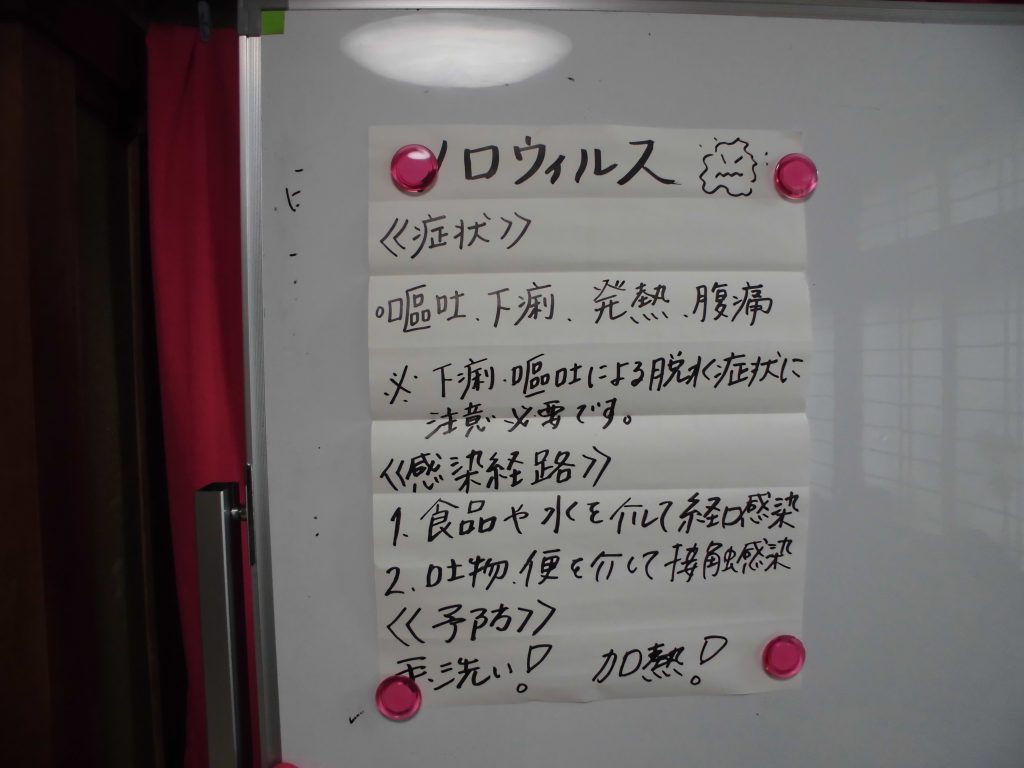 ノロウィルス
《症状》
嘔吐、下痢、発熱、腹痛
※下痢、嘔吐による脱水症状に
注意が必要です。
《感染経路》
1. 食品や水を介して経口感染
2. 吐物、便を介して接触感染
《予防》
手洗い! 加熱!